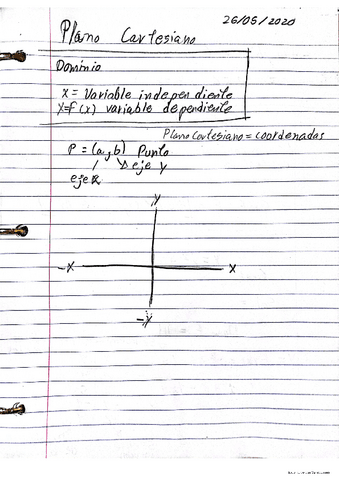 26/05/2020
Plano Cartesiano
Dominio
X = Variable independiente
Y=F(x) variable dependiente
Plano Cartesiano = coordenadas
P = (a,b) Punto
eje y
eje X
y
-X
X
-y